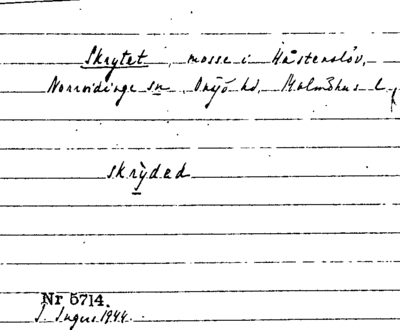 Skrytet, mosse i Hästenslöv,
Norrvidinge sn, Onsjö hd, Malmöhus l.
skrỳ̱ded
Nr 5714.
I. Ingers 1944.